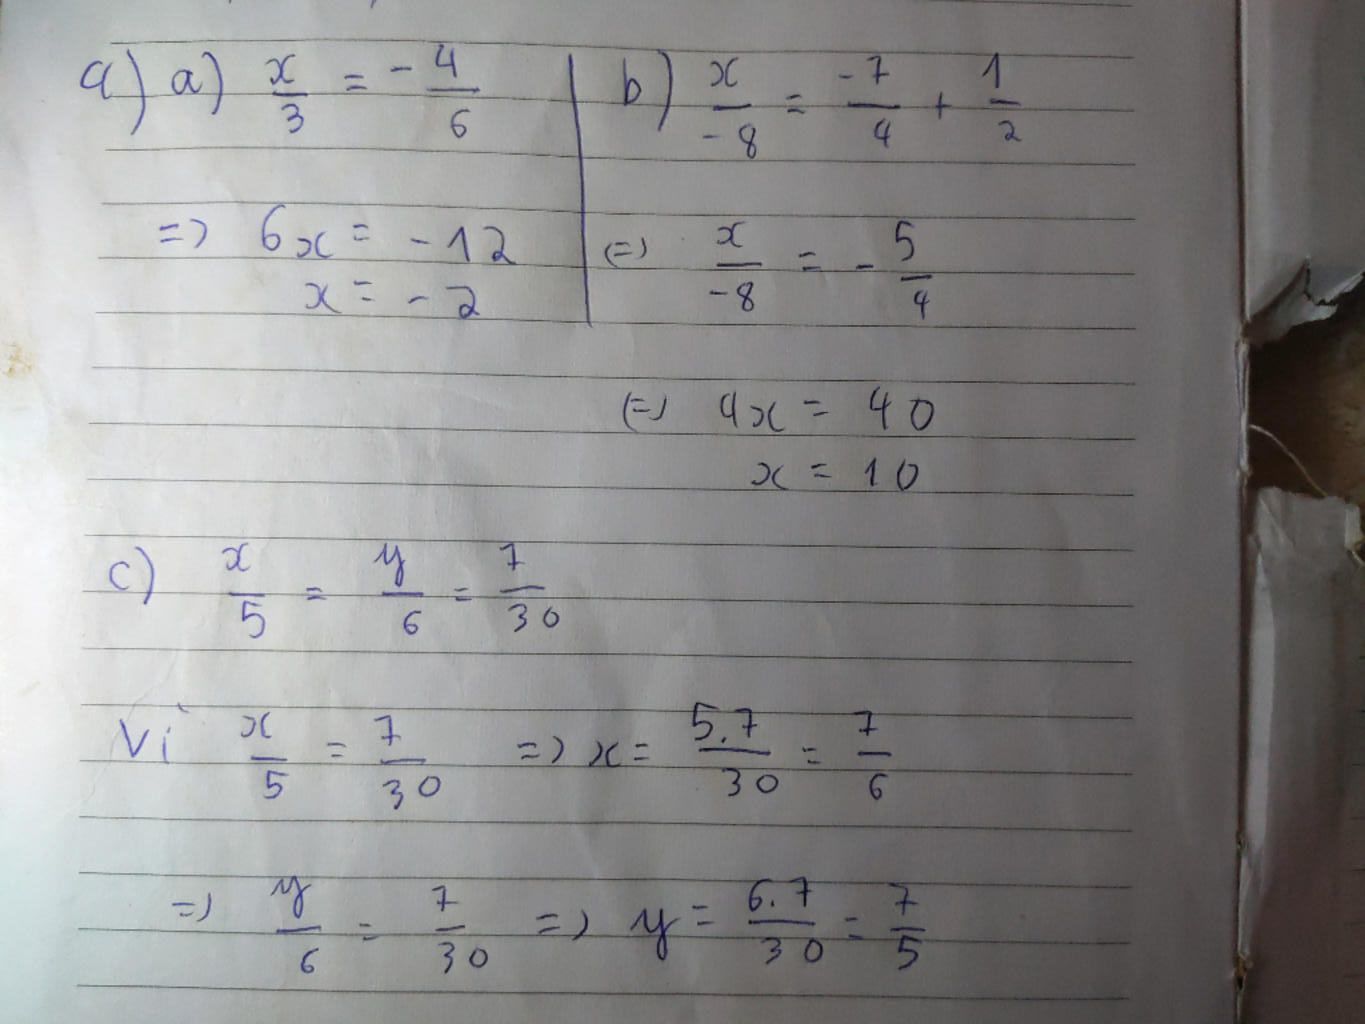 a) a) x/3 = -4/6
=> 6x = -12
x = -2
b) x/-8 = -7/4 + 1/2
(=) x/-8 = -5/4
(=) 4x = 40
x = 10
c) x/5 = y/6 = 7/30
Vì x/5 = 7/30 => x = 5.7/30 = 7/6
=> y/6 = 7/30 => y = 6.7/30 = 7/5